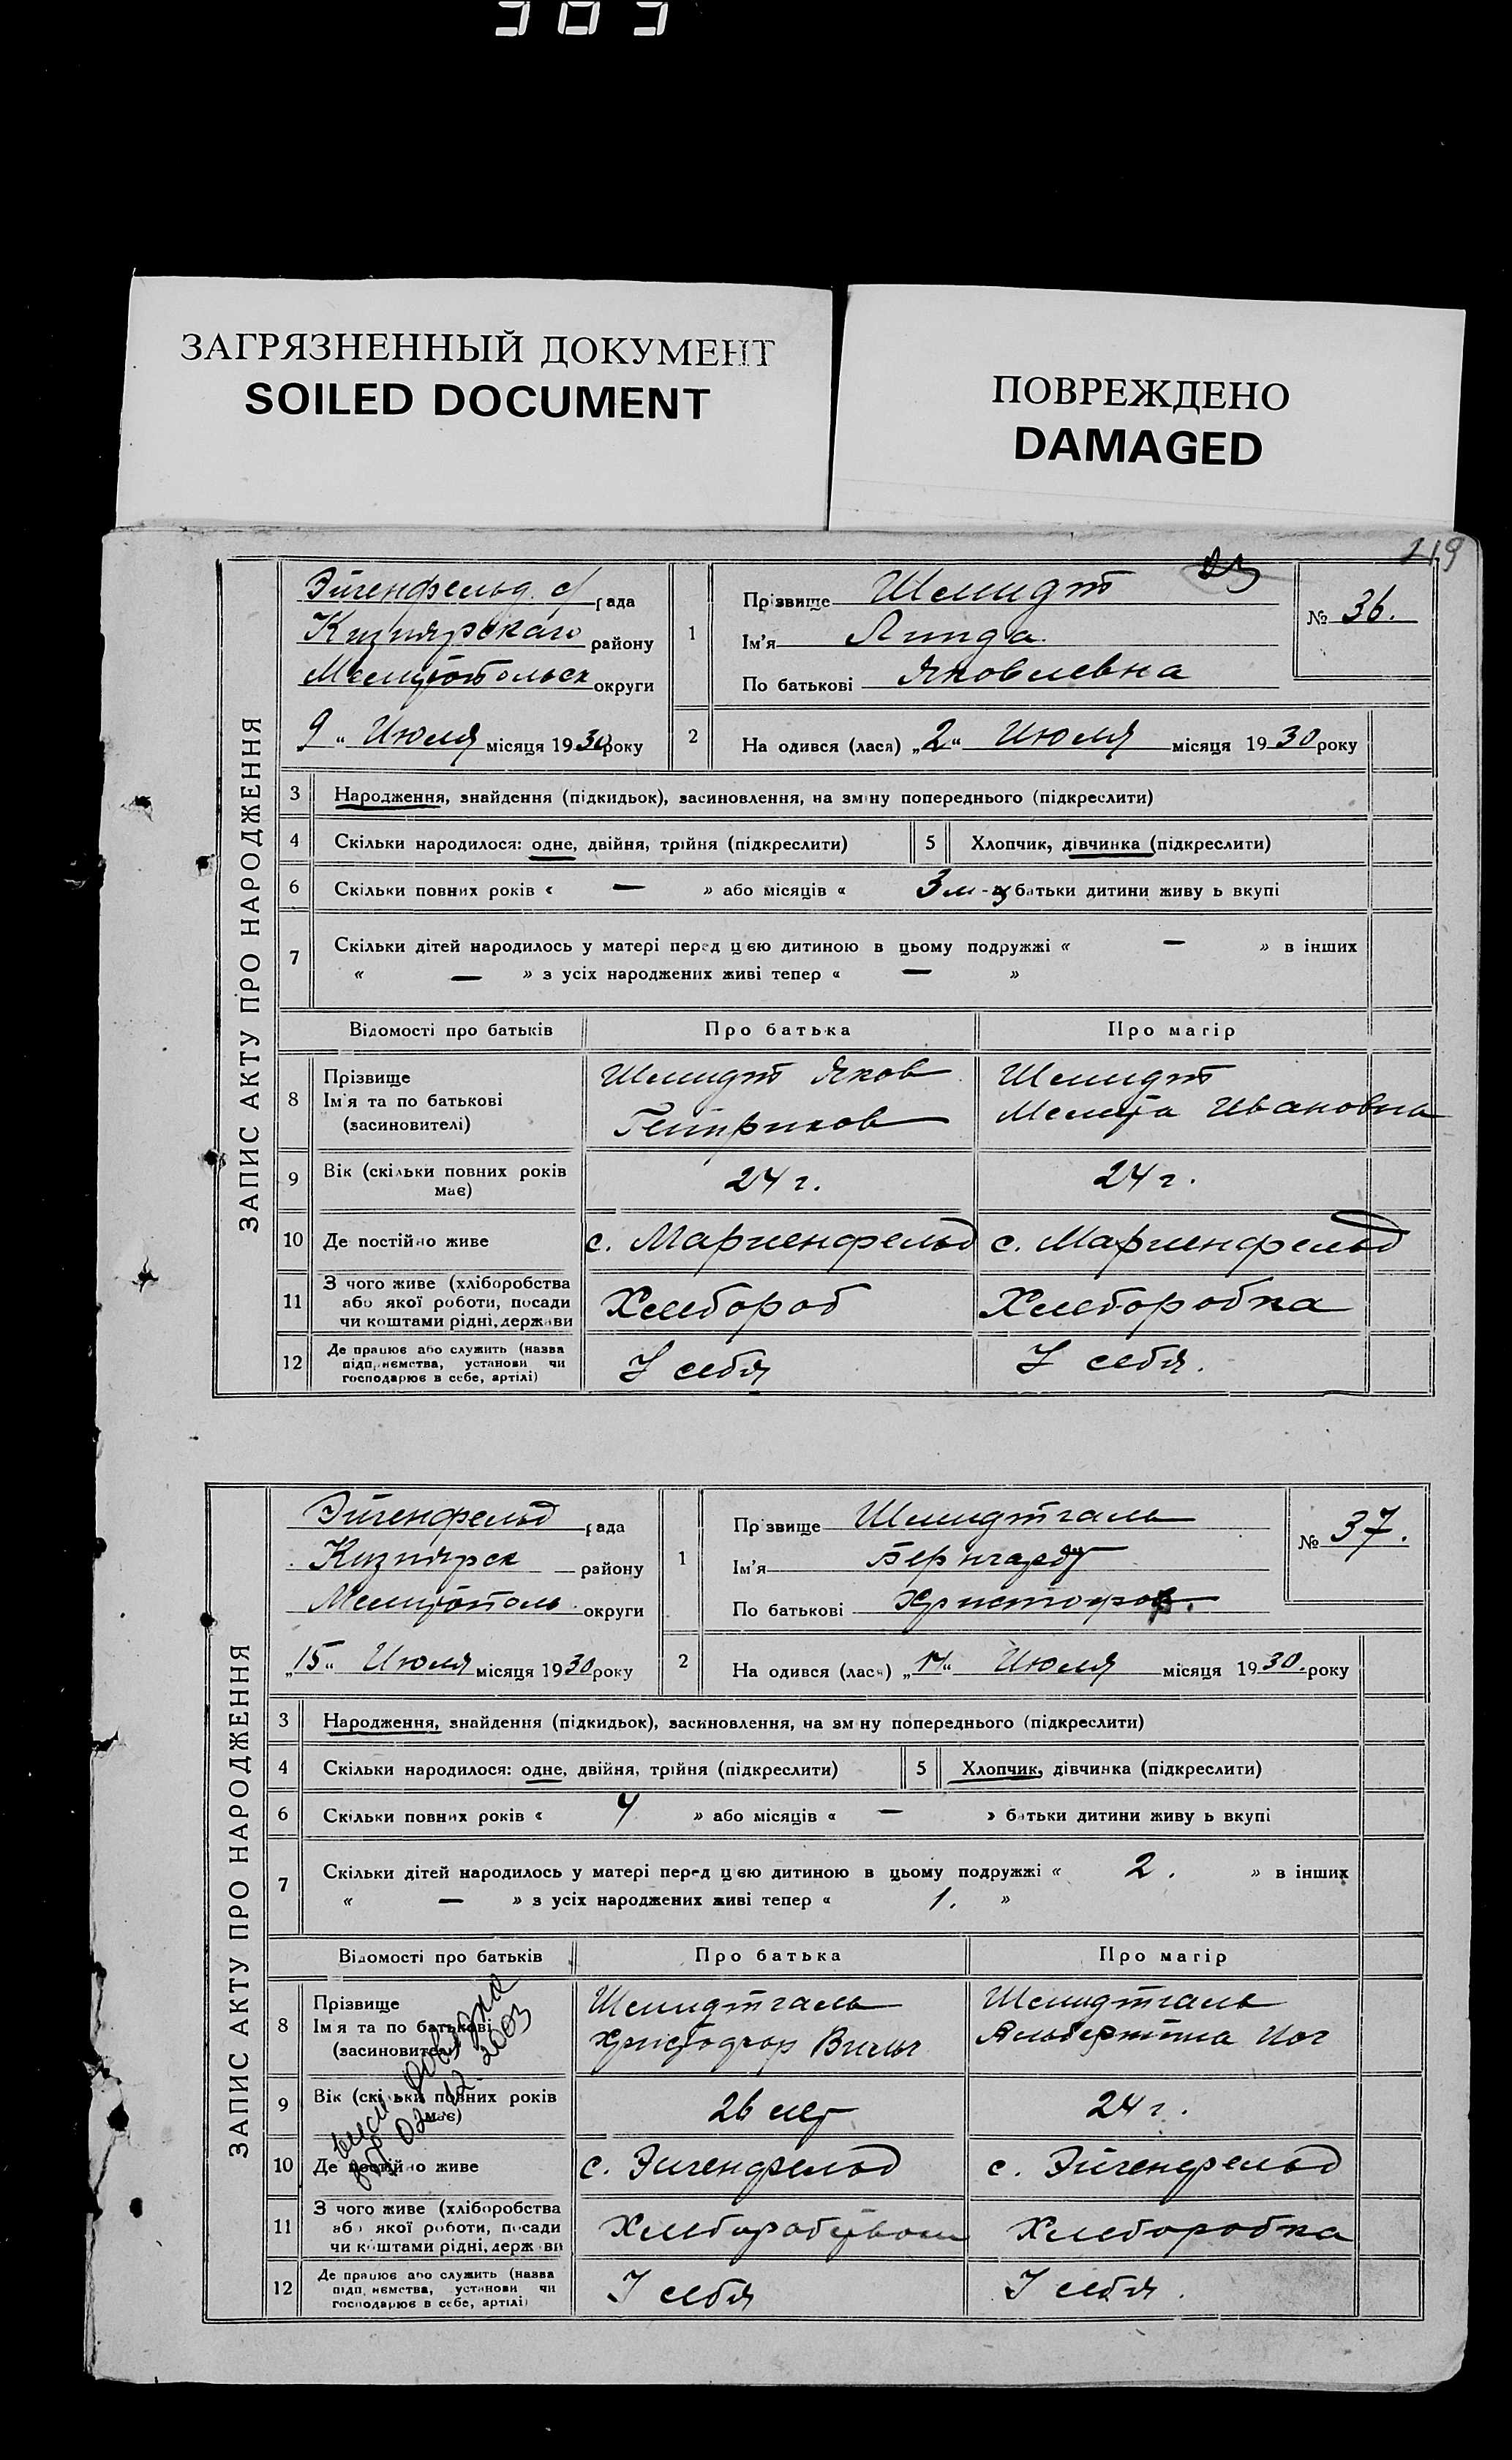 303
ЗАГРЯЗНЕННЫЙ ДОКУМЕНТ
SOILED DOCUMENT
ПОВРЕЖДЕНО
DAMAGED
219
ЗАПИС АКТУ ПРО НАРОДЖЕННЯ
Эйгенфельд. с/ рада
Кизиярскаго району
Мелитопольск округи
9 " Июля місяця 1930 року
1
Прізвище Шмидт
Ім'я Линда
По батькові Яковлевна
№ 36.
2
На одився (лася) „2" Июля місяця 1930 року
3 Народження, знайдення (підкидьок), засиновлення, на зміну попереднього (підкреслити)
4 Скільки народилося: одне, двійня, трійня (підкреслити) 5 Хлопчик, дівчинка (підкреслити)
6 Скільки повних років « — » або місяців « 3 м-ц батьки дитини живу ь вкупі
7 Скільки дітей народилось у матері перед цією дитиною в цьому подружжі « — » в інших
« — » з усіх народжених живі тепер « — »
Відомості про батьків Про батька Про матір
8 Прізвище
Ім'я та по батькові
(засиновителі)
Шмидт Яков
Гейнрихов
Шмидт
Мелита Ивановна
9 Вік (скільки повних років
має)
24 г.
24 г.
10 Де постійно живе с. Мариенфельд с. Мариенфельд
11 З чого живе (хліборобства
або якої роботи, посади
чи коштами рідні, держави
Хлебороб Хлеборобка
12 Де працює або служить (назва
підприємства, установи чи
господарює в себе, артілі)
У себя У себя.
ЗАПИС АКТУ ПРО НАРОДЖЕННЯ
Эйгенфельд рада
Кизиярск району
Мелитополь округи
„15" Июля місяця 1930 року
1
Пр звище Шмидтгаль
Ім'я Бернгард
По батькові Христофов.
№ 37.
2
На одився (лася) „ " Июля місяця 1930. року
3 Народження, знайдення (підкидьок), засиновлення, на зм ну попереднього (підкреслити)
4 Скільки народилося: одне, двійня, трійня (підкреслити) 5 Хлопчик, дівчинка (підкреслити)
6 Скільки повних років « 4 » або місяців « — » батьки дитини живу ь вкупі
7 Скільки дітей народилось у матері перед цією дитиною в цьому подружжі « 2. » в інших
« — » з усіх народжених живі тепер « 1. »
Відомості про батьків Про батька Про матір
8 Прізвище
Ім'я та по батькові
(засиновителі)
Шмидтгаль
Христофор Вильг
Шмидтгаль
Альбертина Иог
02.12.2003
9 Вік (скільки повних років
має)
26 лет
24 г.
10 Де постійно живе с. Эйгенфельд с. Эйгенфельд
11 З чого живе (хліборобства
або якої роботи, посади
чи коштами рідні, держ ви
Хлеборобством Хлеборобка
12 Де працює або служить (назва
підп иємства, установи чи
господарює в себе, артілі)
У себя У себя.